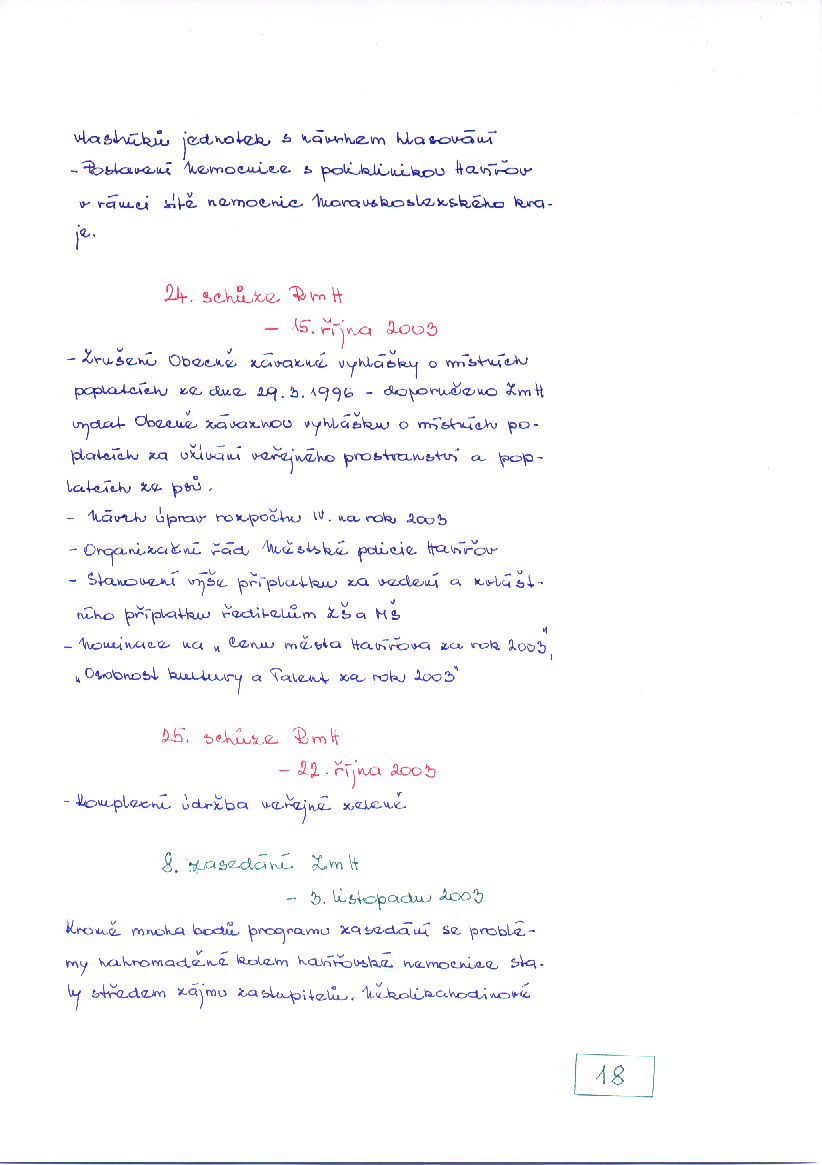 vlastníků jednotek s návrhem hlasování
- Postavení Nemocnice s poliklinikou Havířov
v rámci sítě nemocnic Moravskoslezského kra-
je.
24. schůze RmH
- 15. října 2003
- Zrušení Obecně závazné vyhlášky o místních
poplatcích ze dne 29.3.1996 - doporučeno ZmH
vydat Obecně závaznou vyhlášku o místních po-
platcích za užívání veřejného prostranství a pop-
latcích ze psů.
- Návrh úprav rozpočtu IV. na rok 2003
- Organizační řád Městské policie Havířov
- Stanovení výše příplatku za vedení a zvlášt-
ního příplatku ředitelům ZŠ a MŠ
- Nominace na „Cenu města Havířova za rok 2003",
„Osobnost kultury a Talent za rok 2003"
25. schůze RmH
- 22. října 2003
- Komplexní údržba veřejné zeleně
8. zasedání ZmH
- 3. listopadu 2003
Kromě mnoha bodů programu zasedání se problé-
my nahromaděné kolem havířovské nemocnice sta-
ly středem zájmu zastupitelů. Několikahodinové
18